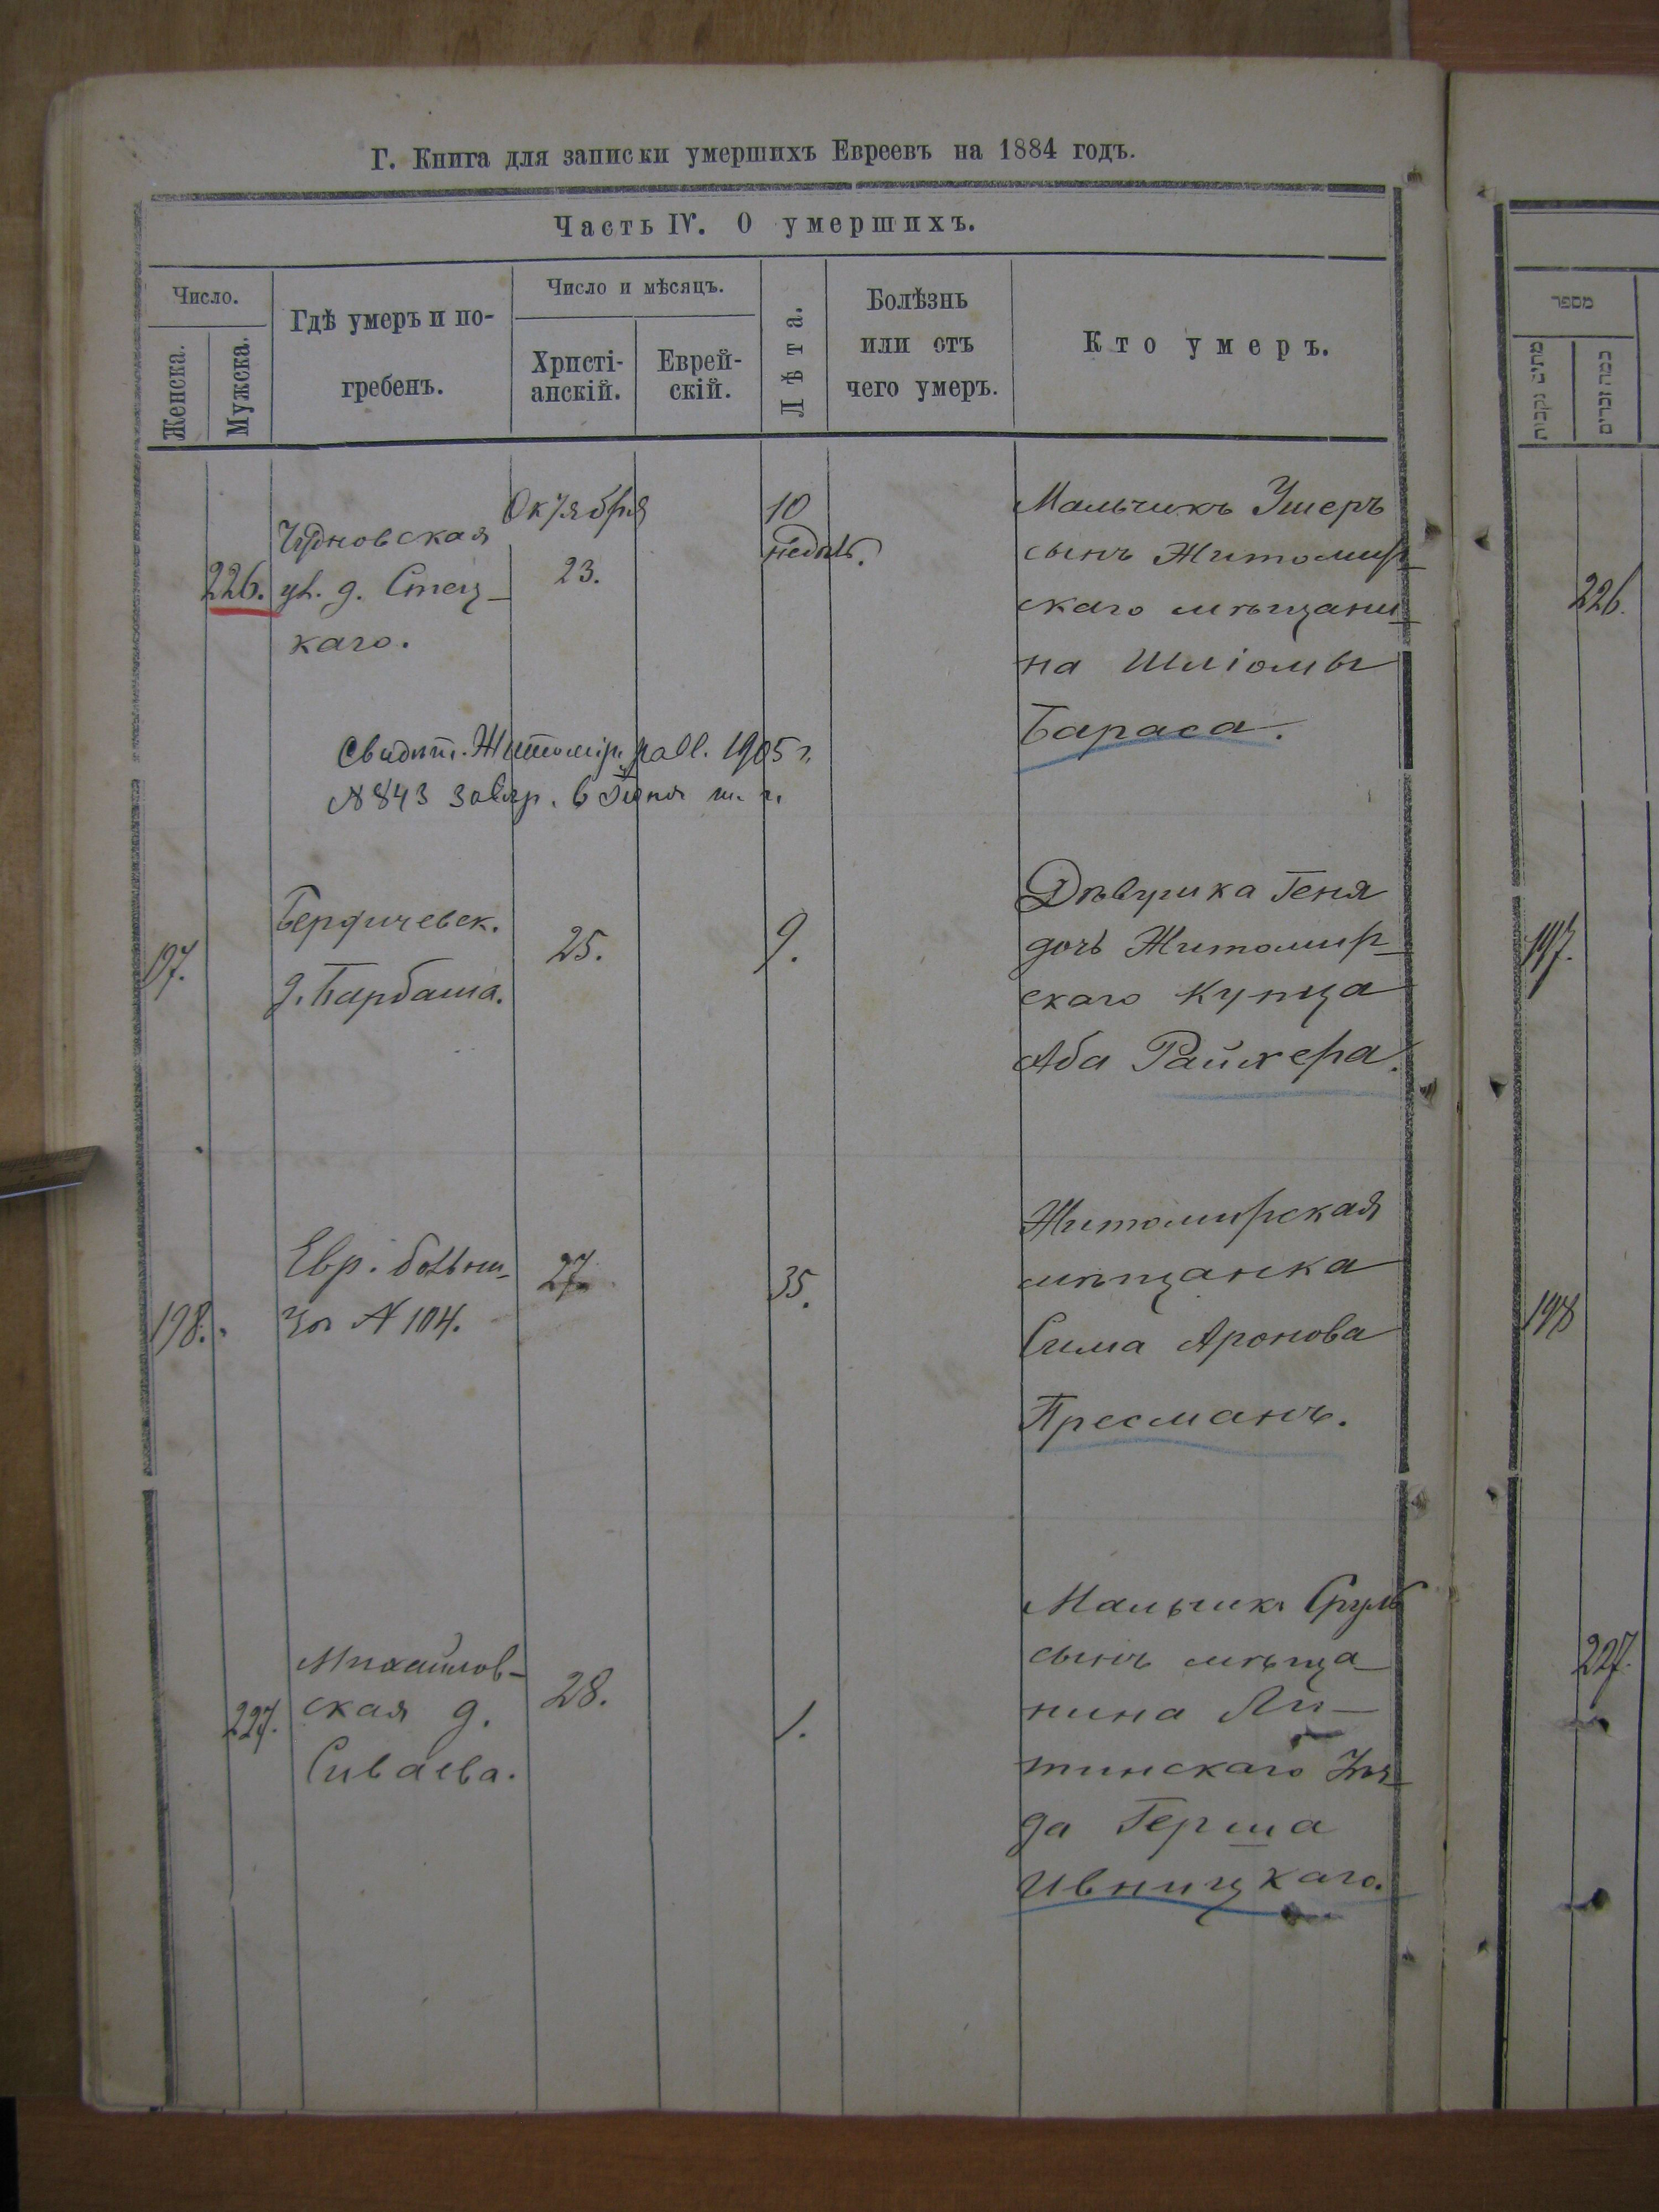 Г. Книга для записки умершихъ Евреевъ на 1884 годъ.
Часть IV. О умершихъ.
Число.
Женска.
Мужска.
Гдѣ умеръ и по-
гребенъ.
Число и мѣсяцъ.
Христі-
анскій.
Еврей-
скій.
Лѣта.
Болѣзнь
или отъ
чего умеръ.
Кто умеръ.
מספר
מתים נקבות
כמה זכרים
226.
Чудновская
ул. д. Стец-
каго.
Октября
23.
10
недѣль.
Мальчикъ Ушеръ
сынъ Житомир-
скаго мѣщани-
на Шліомы
Бараса.
226.
Свидѣт. Житомір. 1905 г.
№ 843 в Іюня т. г.
197.
Бердичевск.
д. Барбаша.
25.
9.
Дѣвушка Геня
дочь Житомир-
скаго Купца
Аба Райхера.
197.
198.
Евр. больни-
ца № 104.
27.
35.
Житомирская
мѣщанка
Сима Аронова
Пресманъ.
198
227.
Михайлов-
ская д.
Сиваева.
28.
1.
Мальчикъ Сруль
сынъ мѣща-
нина Ли-
тинскаго Уѣз-
да Герша
Ивницкаго.
227.